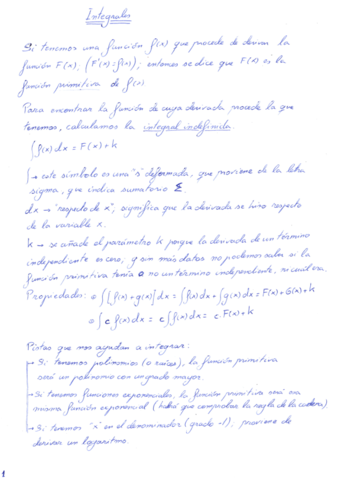 Integrales
Si tenemos una función f(x) que procede de derivar la
función F(x), (F'(x)=f(x)); entonces se dice que F(x) es la
función primitiva de f(x)
Para encontrar la función de cuya derivada procede la que
tenemos, calculamos la integral indefinida.
∫f(x)dx = F(x)+k
∫→ este símbolo es una "s" deformada, que proviene de la letra
sigma, que indica sumatorio Σ.
dx → "respecto de x", significa que la derivada se hizo respecto
de la variable x.
k → se añade el parámetro k porque la derivada de un término
independiente es cero, y sin más datos no podemos saber si la
función primitiva tenía o no un término independiente, ni cual era.
Propiedades: ∫[f(x)+g(x)]dx = ∫f(x)dx+∫g(x)dx = F(x)+G(x)+k
∫c f(x)dx = c∫f(x)dx = c·F(x)+k
Pistas que nos ayudan a integrar:
→ Si tenemos polinomios (o raíces), la función primitiva
será un polinomio con un grado mayor.
→ Si tenemos funciones exponenciales, la función primitiva será esa
misma función exponencial (habrá que comprobar la regla de la cadena)
→ Si tenemos "x" en el denominador (grado -1), proviene de
derivar un logaritmo.
1